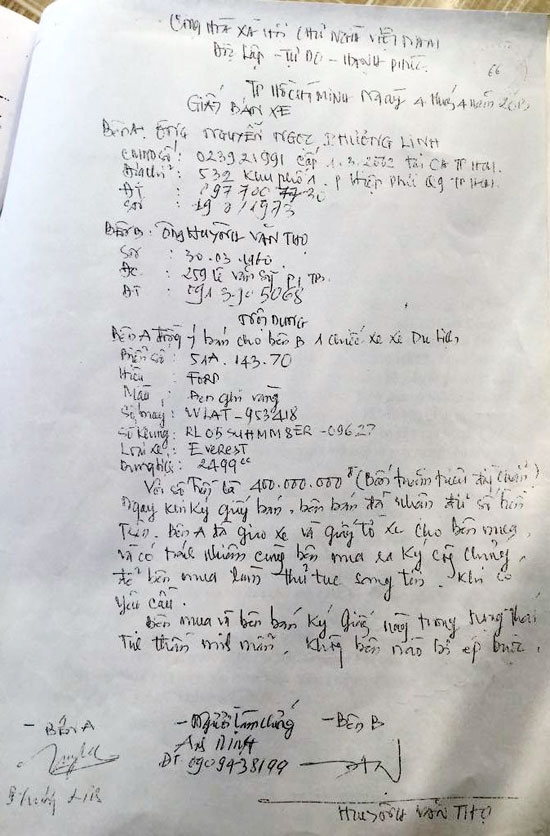 CỘNG HÒA XÃ HỘI CHỦ NGHĨA VIỆT NAM
Độc Lập - Tự Do - Hạnh Phúc
66
TP HỒ CHÍ MINH Ngày 4 tháng 4 năm
GIẤY BÁN XE
BÊN A: ÔNG NGUYỄN NGỌC PHƯƠNG LINH
CMND số: 023921991 cấp 1.3.2002 tại CA TP HCM.
Địa chỉ: 532 Khu phố 1. P Hiệp Phú Q9 TP HCM.
ĐT : 20
SN : 1973
BÊN B: ÔNG HUYỲNH VĂN THỌ
SN : 30.03.1960
ĐC : 259 Lê Văn Sỹ P1 TB
ĐT : 5068
NỘI DUNG
Bên A đồng ý bán cho bên B 1 chiếc xe xe Du lịch
Biển số : 51A.143.70
Hiệu : FORD
Màu : Đen ghi vàng
Số máy : WLAT-953418
Số khung : RL05SUHMM8ER-09627
Loại xe : EVEREST
Dung tích : 2499cc
Với số tiền là 400.000.000đ (Bốn trăm triệu đồng chẵn)
Ngay khi ký giấy bán, bên bán đã nhận đủ số tiền
trên. Bên A đã giao xe và giấy tờ xe cho bên mua,
và có trách nhiệm cùng bên mua ra ký công chứng,
để bên mua làm thủ tục sang tên. Khi có
yêu cầu.
Bên mua và bên bán ký giấy này trong trạng thái
tinh thần minh mẫn, không bên nào bị ép buộc.
- BÊN A - Người làm chứng - BÊN B
ĐT 0909438199
Phương Linh
HUYỲNH VĂN THỌ